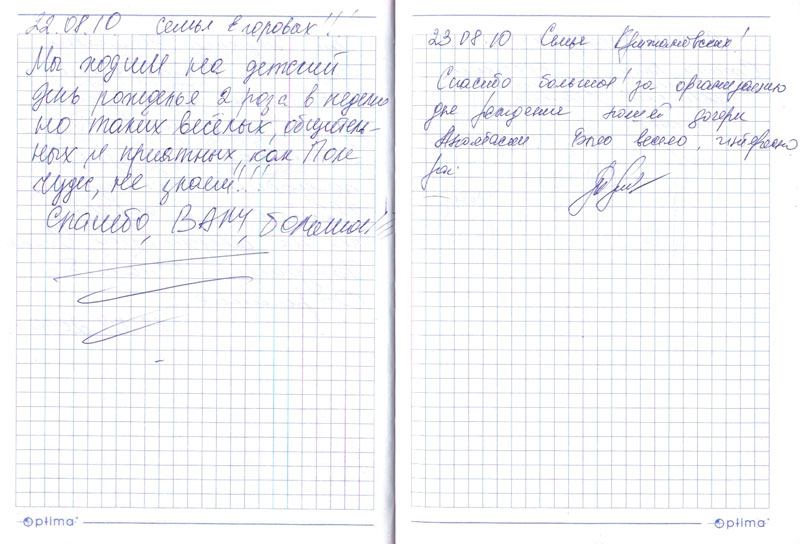 22.08.10 Семья Егоровых!!!
Мы ходим на детский
день рожденье 2 раза в неделю
но таких весёлых, общитель-
ных и приятных, как Поле
чудес, не знаем!!!
Спасибо, ВАМ, большое!!!
Optima
23 08 10 Семья Крижановских!
Спасибо большое! за организацию
дне рождение нашей дочери
Анастасии Было весело, интересно
Optima